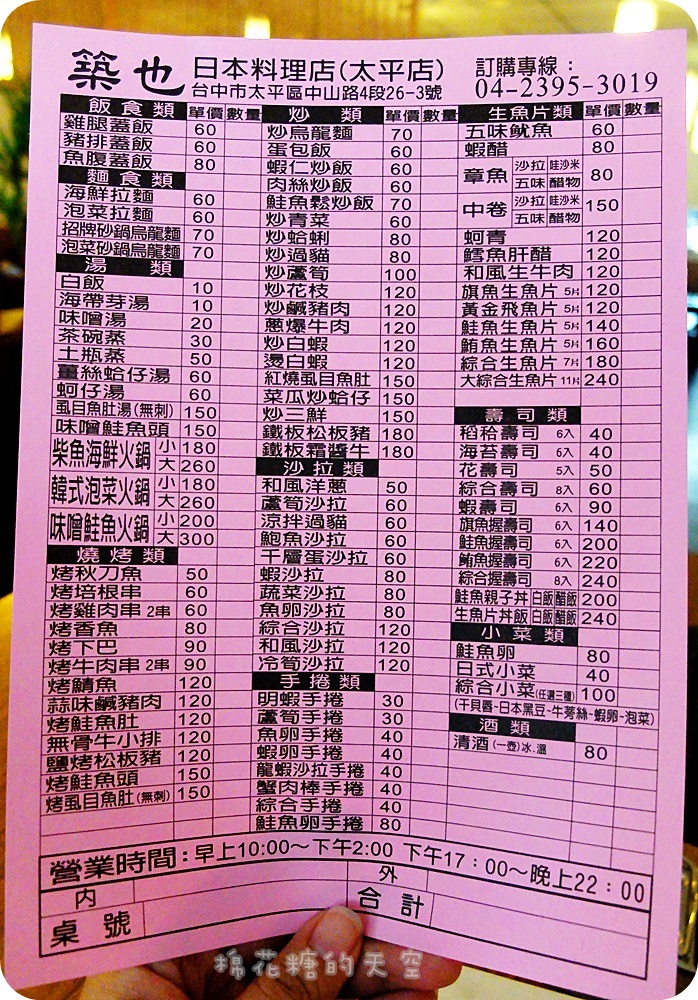 築也 日本料理店(太平店)
台中市太平區中山路4段26-3號
訂購專線：
04-2395-3019
飯食類 單價 數量
雞腿蓋飯 60
豬排蓋飯 60
魚腹蓋飯 80
麵食類
海鮮拉麵 60
泡菜拉麵 60
招牌砂鍋烏龍麵 70
泡菜砂鍋烏龍麵 70
湯類
白飯 10
海帶芽湯 10
味噌湯 20
茶碗蒸 30
土瓶蒸 50
薑絲蛤仔湯 60
蚵仔湯 60
虱目魚肚湯(無刺) 150
味噌鮭魚頭 150
柴魚海鮮火鍋 小 180
大 260
韓式泡菜火鍋 小 180
大 260
味噌鮭魚火鍋 小 200
大 300
燒烤類
烤秋刀魚 50
烤培根串 60
烤雞肉串 2串 60
烤香魚 80
烤下巴 90
烤牛肉串 2串 90
烤鯖魚 120
蒜味鹹豬肉 120
烤鮭魚肚 120
無骨牛小排 120
鹽烤松板豬 120
烤鮭魚頭 150
烤虱目魚肚(無刺) 150
炒類 單價 數量
炒烏龍麵 70
蛋包飯 60
蝦仁炒飯 60
肉絲炒飯 60
鮭魚鬆炒飯 70
炒青菜 60
炒蛤蜊 80
炒過貓 80
炒蘆筍 100
炒花枝 120
炒鹹豬肉 120
蔥爆牛肉 120
炒白蝦 120
燙白蝦 120
紅燒虱目魚肚 150
菜瓜炒蛤仔 150
炒三鮮 150
鐵板松板豬 180
鐵板霜醬牛 180
沙拉類
和風洋蔥 50
蘆筍沙拉 60
涼拌過貓 60
鮑魚沙拉 60
千層蛋沙拉 60
蝦沙拉 80
蔬菜沙拉 80
魚卵沙拉 80
綜合沙拉 120
和風沙拉 120
冷筍沙拉 120
手捲類
明蝦手捲 30
蘆筍手捲 30
魚卵手捲 40
蝦卵手捲 40
龍蝦沙拉手捲 40
蟹肉棒手捲 40
綜合手捲 40
鮭魚卵手捲 80
生魚片類 單價 數量
五味魷魚 60
蝦醋 80
章魚 沙拉 哇沙米 五味 醋物 80
中卷 沙拉 哇沙米 五味 醋物 150
蚵青 120
鱈魚肝醋 120
和風生牛肉 120
旗魚生魚片 5片 120
黃金飛魚片 5片 120
鮭魚生魚片 5片 140
鮪魚生魚片 5片 160
綜合生魚片 7片 180
大綜合生魚片 11片 240
壽司類
稻秴壽司 6入 40
海苔壽司 6入 40
花壽司 5入 50
綜合壽司 8入 60
蝦壽司 6入 90
旗魚握壽司 6入 140
鮭魚握壽司 6入 200
鮪魚握壽司 6入 220
綜合握壽司 8入 240
鮭魚親子丼 白飯 醋飯 200
生魚片丼飯 白飯 醋飯 240
小菜類
鮭魚卵 80
日式小菜 40
綜合小菜(任選三種) 100
(干貝唇~日本黑豆~牛蒡絲~蝦卵~泡菜)
酒類
清酒(一壺)冰.溫 80
營業時間：早上10:00～下午2:00 下午17：00～晚上22：00
內 外
桌號 合計
棉花糖的天空